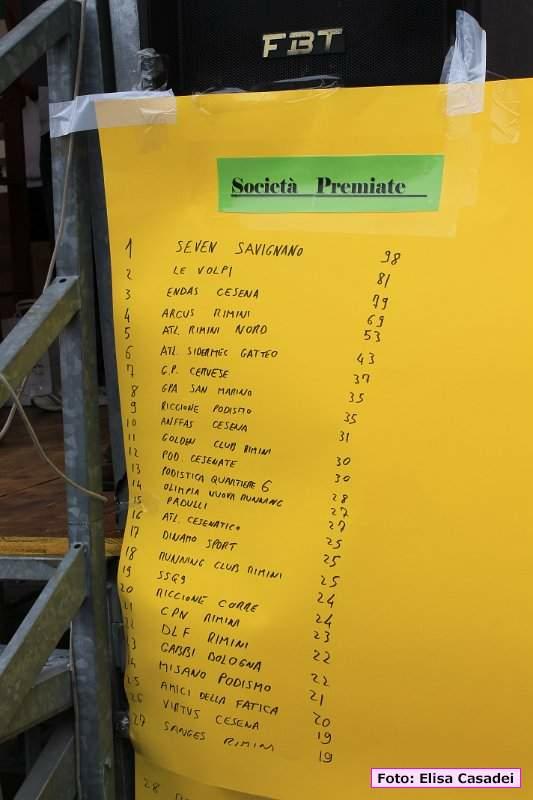 FBT
Società Premiate
1 SEVEN SAVIGNANO 98
2 LE VOLPI 81
3 ENDAS CESENA 79
4 ARCUS RIMINI 69
5 ATL RIMINI NORD 53
6 ATL. SIDERMEC GATTEO 43
7 G.P. CERVESE 37
8 GPA SAN MARINO 35
9 RICCIONE PODISMO 35
10 ANFFAS CESENA 31
11 GOLDEN CLUB RIMINI 30
12 POD. CESENATE 30
13 PODISTICA QUARTIERE 6 28
14 OLIMPIA NUOVA RUNNING 27
15 PADULLI 27
16 ATL. CESENATICO 25
17 DINAMO SPORT 25
18 RUNNING CLUB RIMINI 25
19 SSG9 24
20 RICCIONE CORRE 24
21 CPN RIMINI 23
22 DLF RIMINI 22
23 GABBI BOLOGNA 22
24 MISANO PODISMO 21
25 AMICI DELLA FATICA 20
26 VIRTUS CESENA 19
27 SANGES RIMINI 19
28
Foto: Elisa Casadei